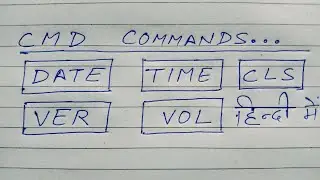 CMD COMMANDS...
DATE TIME CLS
VER VOL हिन्दी में